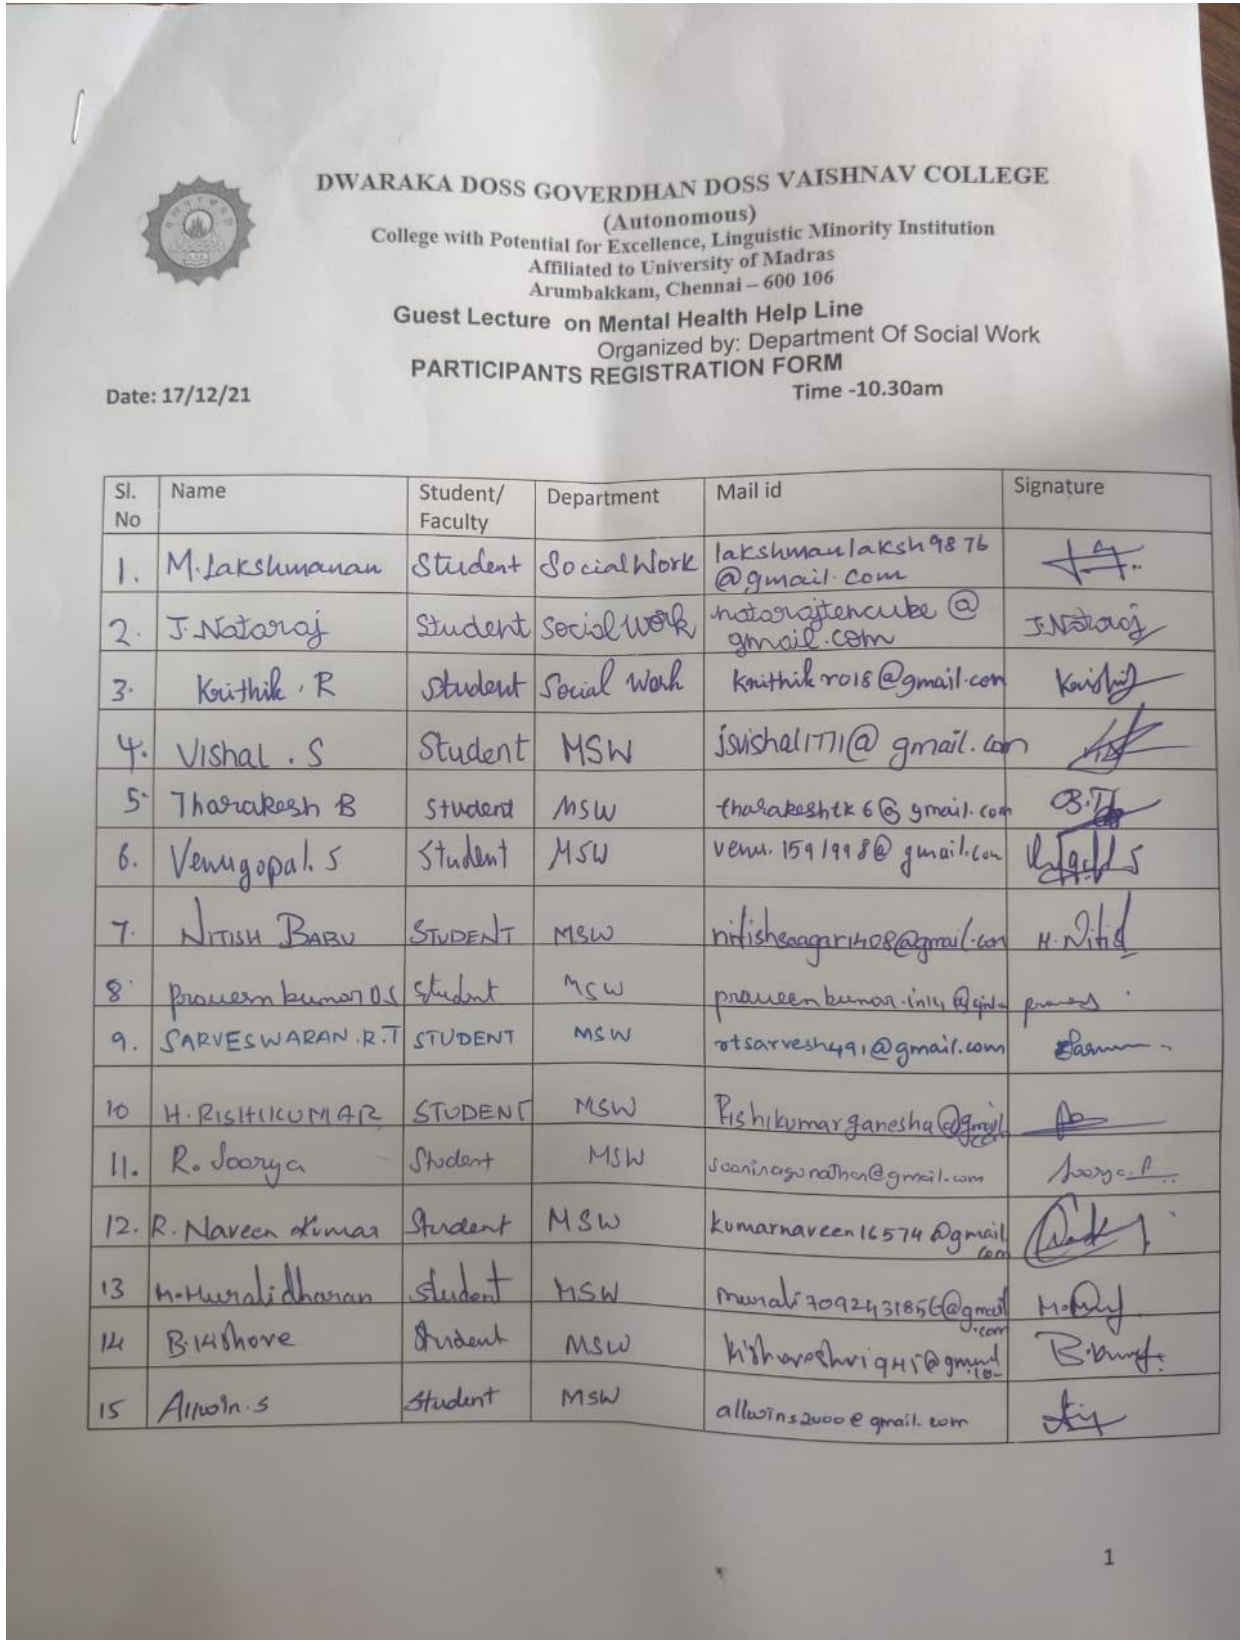 DWARAKA DOSS GOVERDHAN DOSS VAISHNAV COLLEGE
(Autonomous)
College with Potential for Excellence, Linguistic Minority Institution
Affiliated to University of Madras
Arumbakkam, Chennai – 600 106
Guest Lecture on Mental Health Help Line
Organized by: Department Of Social Work
PARTICIPANTS REGISTRATION FORM
Date: 17/12/21 Time -10.30am
Sl. No Name Student/ Faculty Department Mail id Signature
1. M.Lakshmanan Student Social Work lakshmanlaksh9876
@gmail.com
2. J.Nataraj Student Social Work natarajtencube @
gmail.com J.Nataraj
3. Krithik . R Student Social Work krithikr018@gmail.com
4. Vishal . S Student MSW jsvishal1771@ gmail.com
5. Tharakesh B Student MSW tharakeshtk6@ gmail.com
6. Venugopal. S Student MSW venu.1591998@ gmail.com
7. NITISH BABU STUDENT MSW nitishsaagar1408@gmail.com
8. Praveen kumar D.S Student MSW
9. SARVESWARAN.R.T STUDENT MSW rtsarvesh491@gmail.com
10 H. RISHIKUMAR STUDENT MSW Rishikumarganesha@gmail
com
11. R. Soorya Student MSW @gmail.com Soorya.R
12. R. Naveen Kumar Student MSW kumarnaveen16574@gmail
com
13 M.Muralidharan Student MSW murali7092431856@gmail
.com
14 B.Kishore Student MSW
15 Allwin.S Student MSW allwins2000@gmail.com
1